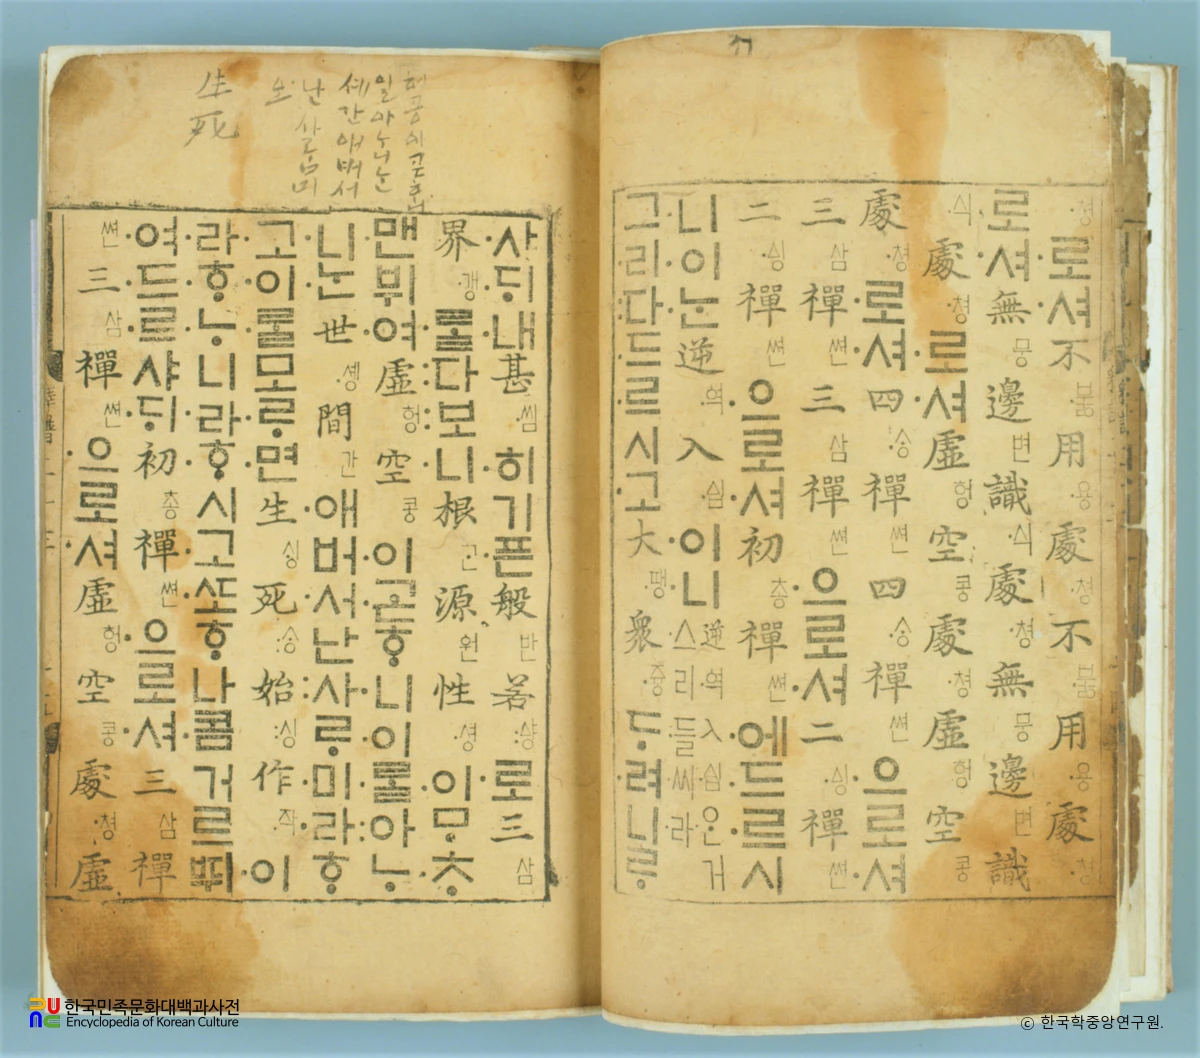 ·쳥로·셔不·붏用·용處·쳥不·붏用·용處·쳥
로·셔無뭉邊변識·식處·쳥無뭉邊변識
·식處·쳥로·셔虛헝空콩處·쳥虛헝空콩
處·쳥로·셔四·ᄉᆞᆼ禪쎤四·ᄉᆞᆼ禪쎤·으로·셔
三삼禪쎤三삼禪쎤·으로·셔二·ᅀᅵᆼ禪쎤
二·ᅀᅵᆼ禪쎤·으로·셔初총禪쎤·에·드르시
니·이·ᄂᆞᆫ逆·역入·ᅀᅵᆸ·이니逆·역入·ᅀᅵᆸ·은거·스리·들·씨·라
그·리·다·ᄃᆞ르·시·고大·땡衆·즁ᄃᆞ·려니ᄅᆞ
·샤·ᄃᆡ·내甚·씸·히기·픈般반若:ᅀᅣᆼ·로三삼
界·갱·ᄅᆞᆯ:다:보·니根ᄀᆞᆫ源원性·셩·이ᄆᆞ·ᄎᆞ
·맨뷔·여虛헝空콩·이·ᄀᆞᆮᄒᆞ니·이·ᄅᆞᆯ·아·ᄂᆞ
·니·ᄂᆞᆫ世·솅間간·애버·서난:사:ᄅᆞ·미·라:ᄒᆞ
·고·이·ᄅᆞᆯ모·ᄅᆞ·면生ᄉᆡᆼ死:ᄉᆞᆼ始:싱作·작·이
·라·ᄒᆞ·ᄂᆞ니·라·ᄒᆞ·시고·ᄯᅩ·ᄒᆞ나·콤거르ᄠᅱ
·여·드르·샤·ᄃᆡ初총禪쎤·으로·셔三삼禪
쎤三삼禪쎤·으로·셔虛헝空콩處·쳥虛
세간애버서
生死
한국민족문화대백과사전
Encyclopedia of Korean Culture
© 한국학중앙연구원.